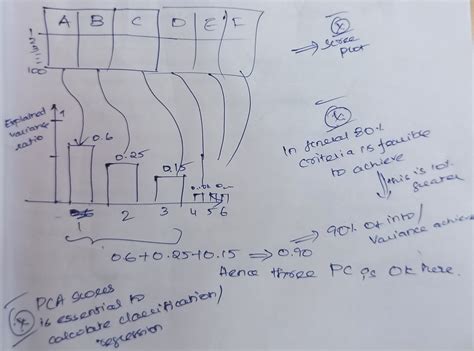 A B C D E F
1
2
3
100
(*)
⇒ scree
plot
Explained
variance
ratio
1
0.6
0.25
0.15
1 2 3 4 5 6
(*)
In general 80%
criteria is feasible
to achieve
this is 10%
greater
0.6+0.25+0.15 ⇒ 0.90
90% of info/
variance achieve
Hence three PC is ok here.
(*)
PCA scores
is essential to
calculate classification/
regression